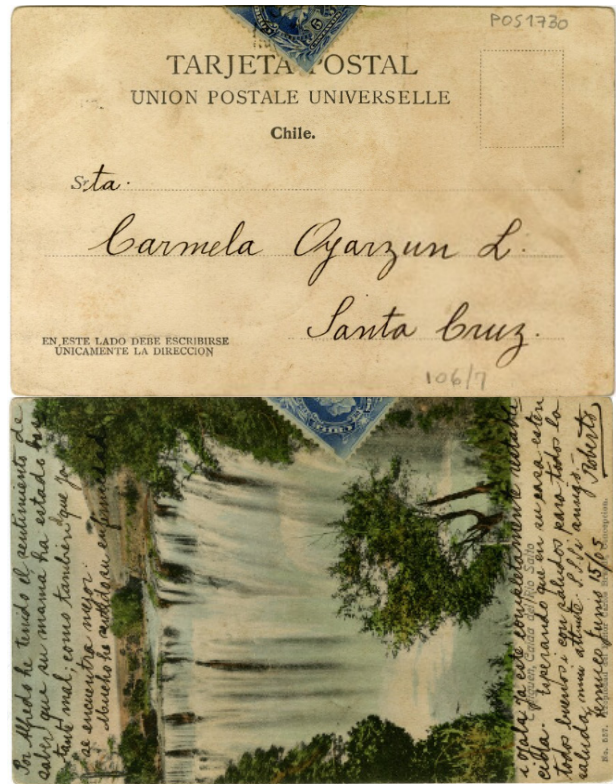 POS1730
TARJETA POSTAL
UNION POSTALE UNIVERSELLE
Chile.
Srta.
Carmela Oyarzun L.
Santa Cruz.
EN ESTE LADO DEBE ESCRIBIRSE
ÚNICAMENTE LA DIRECCION
106/7
Por Alfredo he tenido el sentimiento de
saber que su mama ha estado bas
tante mal, como tambien que ya
se encuentra mejor.
Mucho he sentido su enfermedad
i ojala ya esté completamente restable
cida. Esperando que en su casa estén
todos buenos i con saludos para todos la
saluda, mui attmte. S.S. i amigo.
Roberto
Temuco Junio 15/05
Collipulli, Caida del Rio Salto
No. 657.
Concepcion.